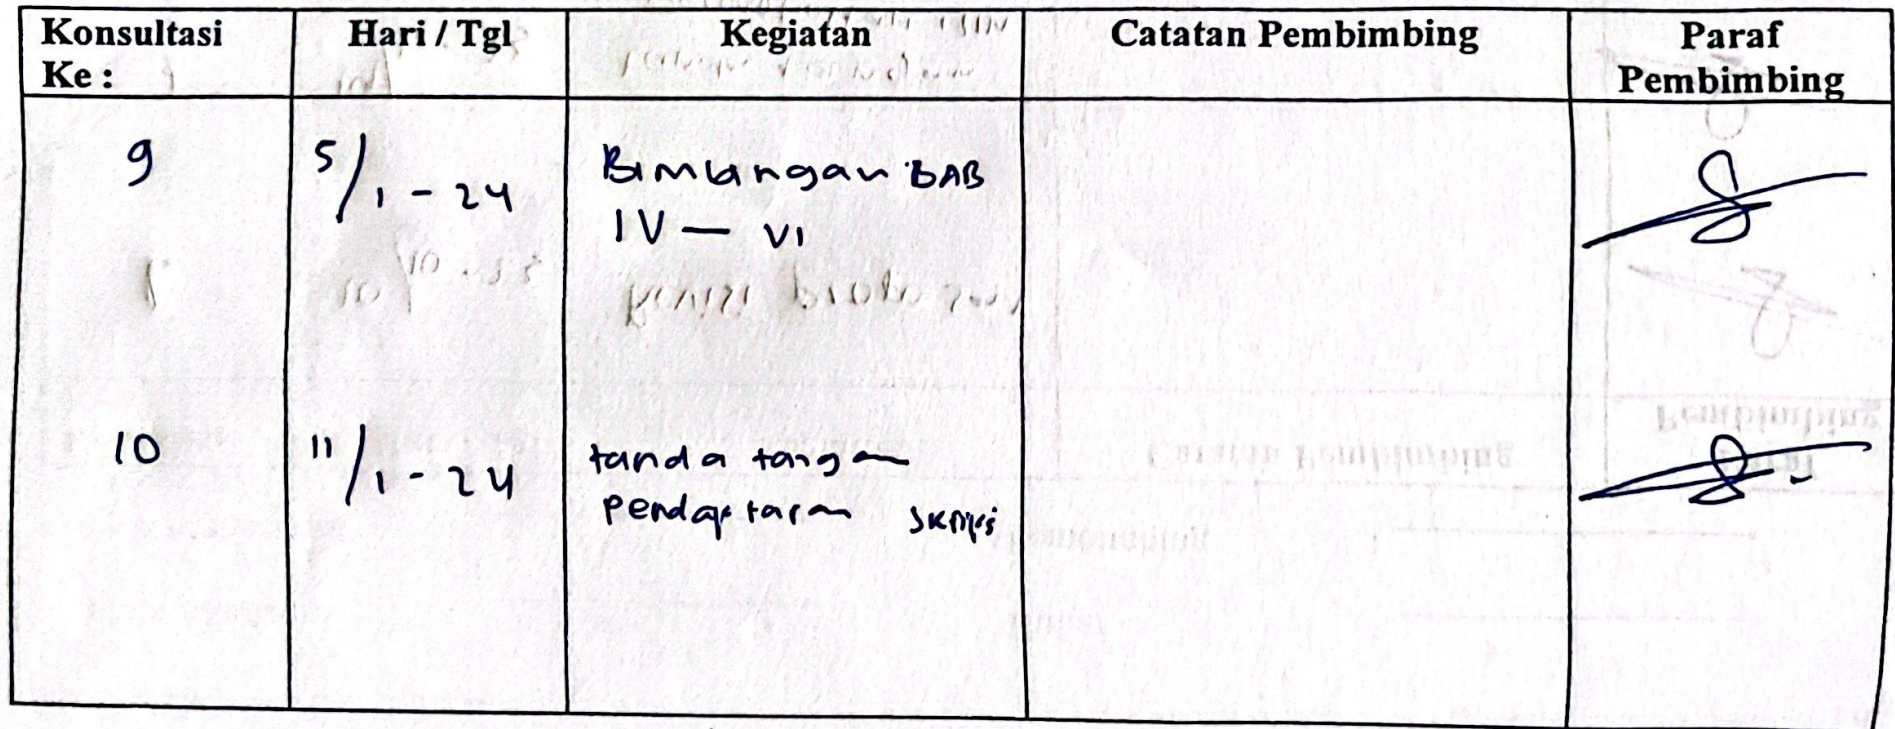 Konsultasi Ke :
Hari / Tgl
Kegiatan
Catatan Pembimbing
Paraf Pembimbing
9
5/1 - 24
Bimbingan BAB
IV — VI
10
11/1 - 24
tanda tangan
pendaftaran skripsi